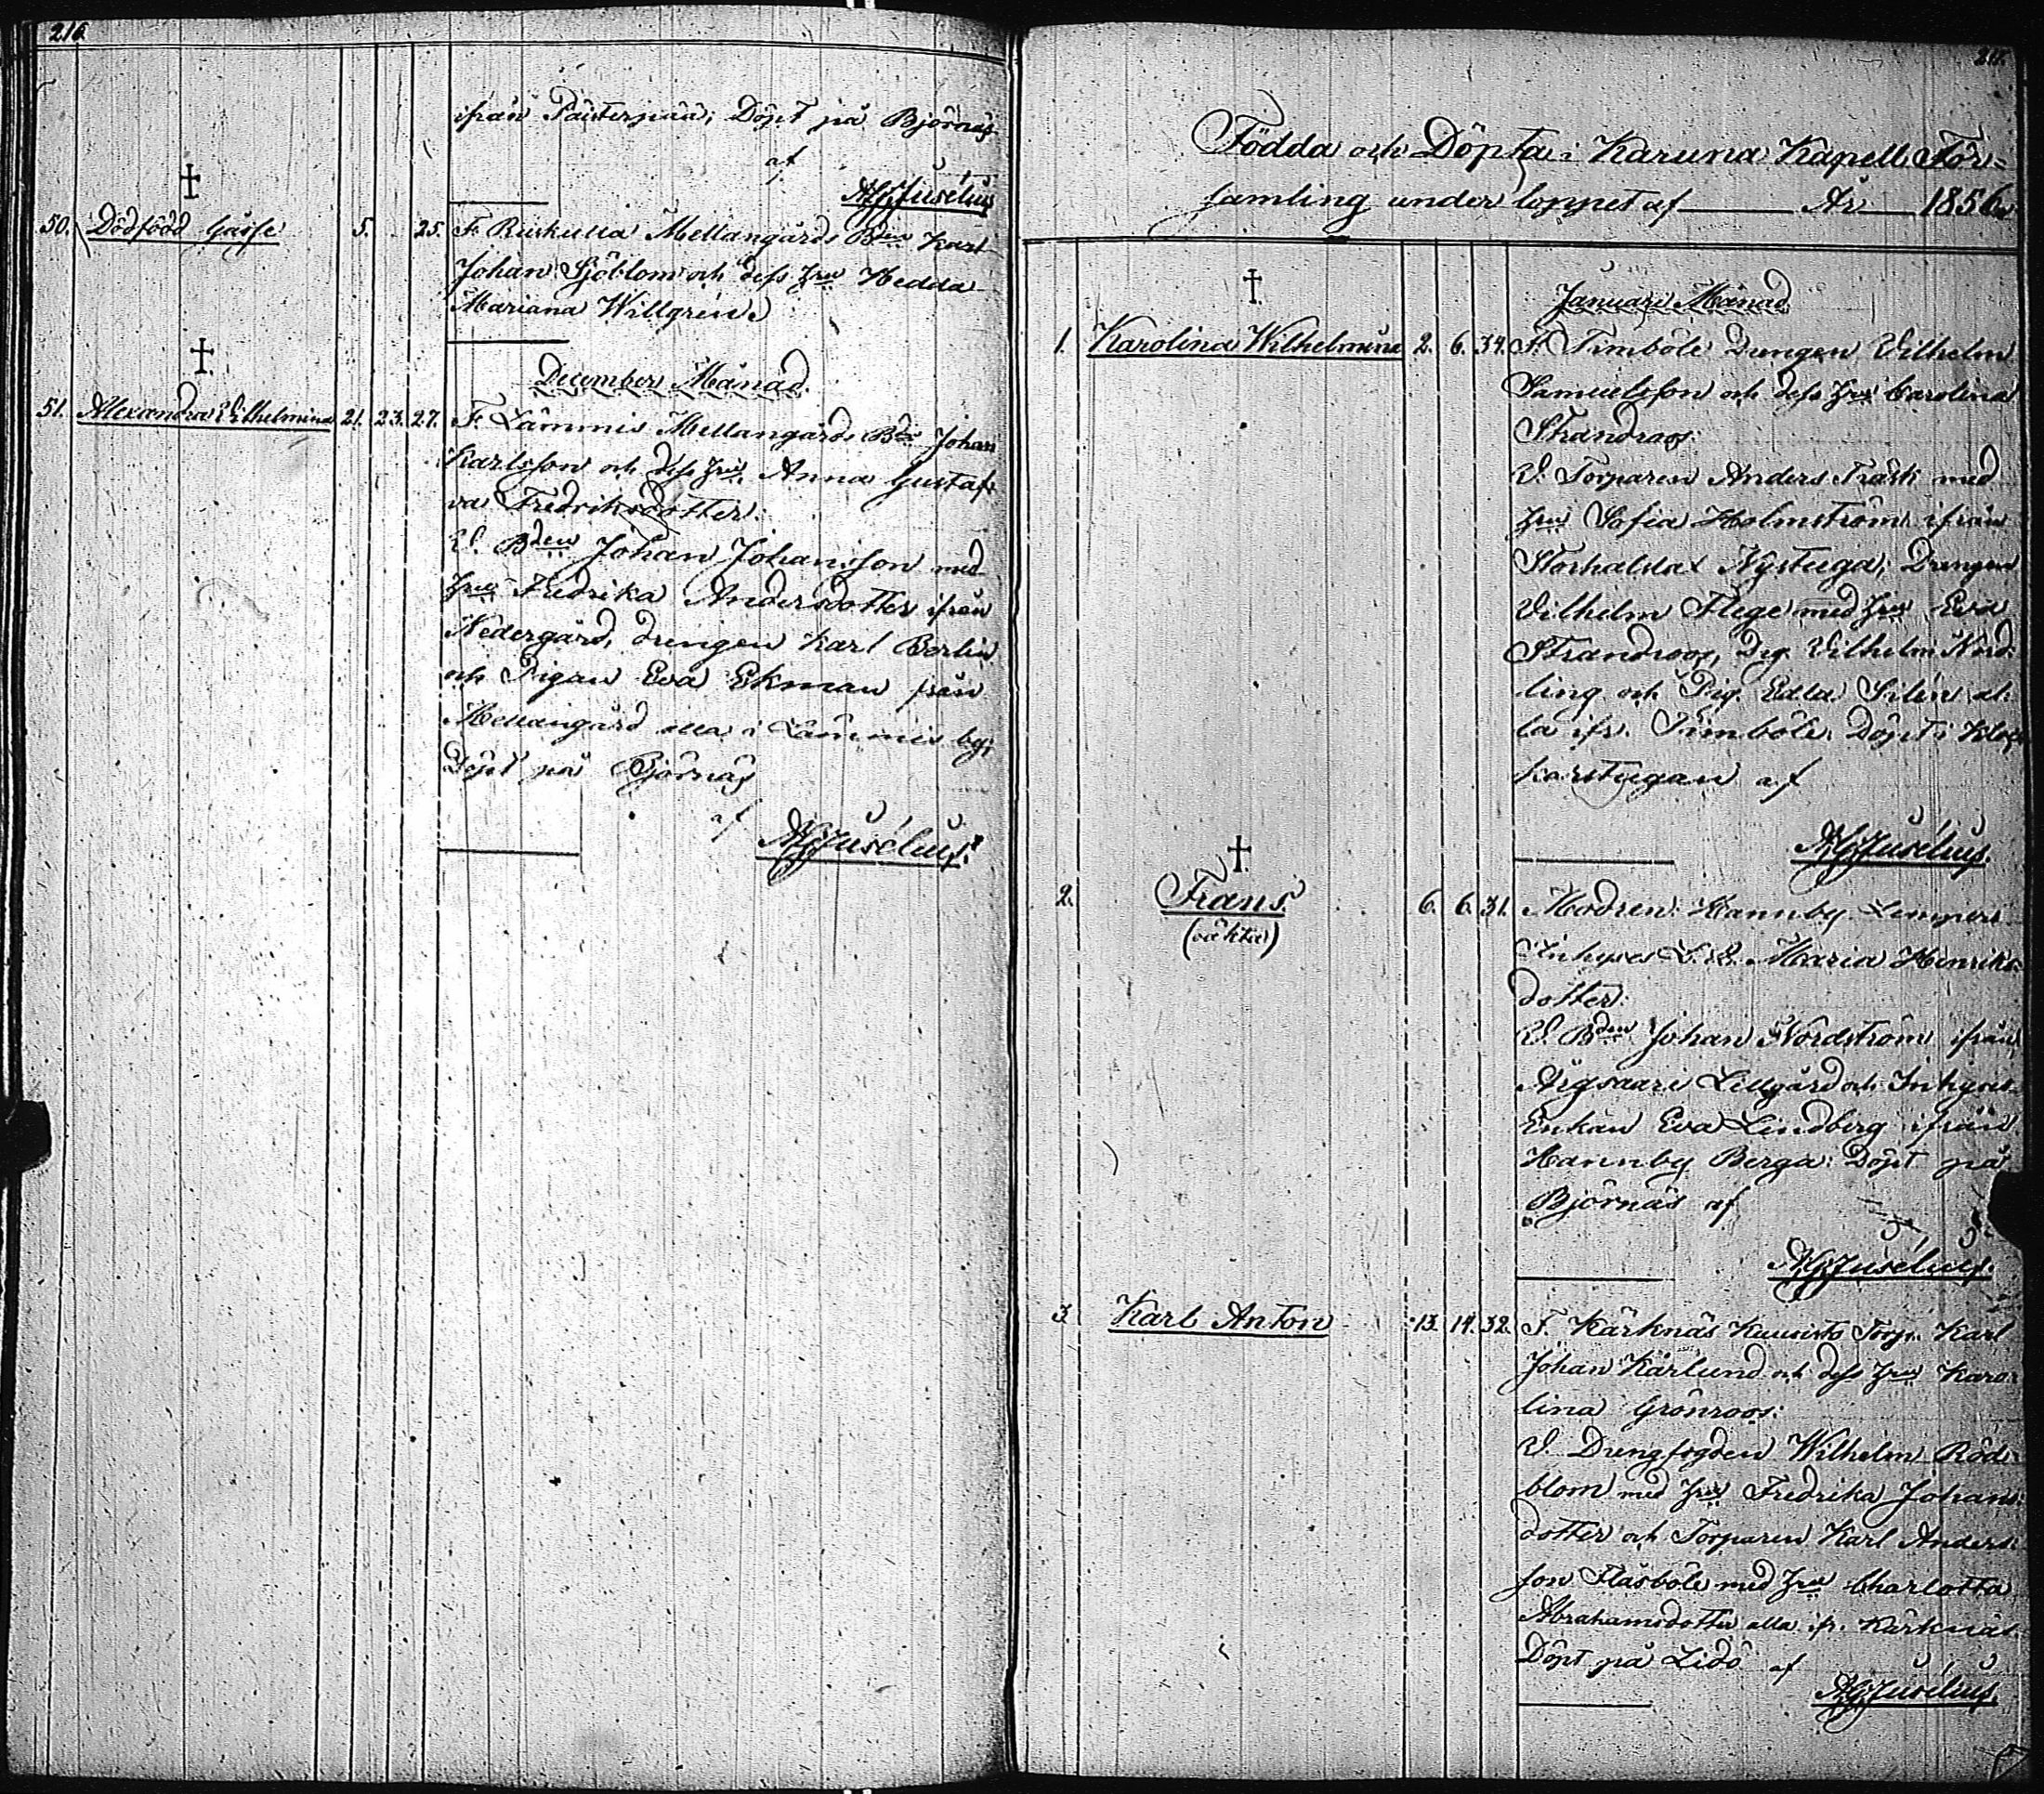 216.
ifrån Päiterpää; Döpt på Bjornäs
af
AGJusélius
50. Dödfödd Gåsse 5. 25. F. Ruskulla Mellangårds Bden Karl
Johan Sjöblom och dess Hru Hedda
Mariana Willgrén.
December Månad.
51. Alexandra Vilhelmina 21. 23. 27. F. Lämmis Mellangårds Bdn Johan
Karlsson och dess Hru Anna Gustaf-
va Fredriksdotter:
V. Bden Johan Johansson med
Hru Fredrika Andersdotter ifrån
Nedergård, drengen Karl Berlin
och Pigan Eva Ekman från
Mellangård alla i Lämmis by;
Döpt på Bjornäs
af
AGJusélius.
217.
Födda och Döpta i Karuna Kapell För-
samling under loppet af År 1856.
Januari Månad.
1. Karolina Wilhelmina 2. 6. 34. F. Timböle Drengen Vilhelm
Samuelsson och dess Hru Carolina
Strandroos:
V. Torparen Anders Träsk med
Hru Sofia Holmström ifrån
Storhalsla Nystuga; Drengen
Vilhelm Flege med Hru Eva
Strandroos, Drg. Vilhelm Nord-
ling och Pig. Edla Silén al-
la ifr. Timböle. Döpt i Kloc-
karstugan af
AGJusélius.
2. Frans (oäkta) 6. 6. 31. Modren: Hannby Lempers
Inhyses L. Maria Henriks-
dotter:
V. Bden Johan Nordström ifrån
Angsaari Lillgård och Inhyses
Enkan Eva Lindberg ifrån
Hannby Berga: Döpt på
Bjornäs af
AGJusélius.
3. Karl Anton 13. 14. 32. F. Kärknäs Kuusisto Torp. Karl
Johan Kärlund och dess Hru Karo-
lina Grönroos:
V. Drengfogden Wilhelm Röd-
blom med Hru Fredrika Johans-
dotter och Torparen Karl Anders-
son Flasböle med Hru Charlotta
Abrahamsdotter alla ifr. Kärknäs
Döpt på Lidö af
AGJusélius.